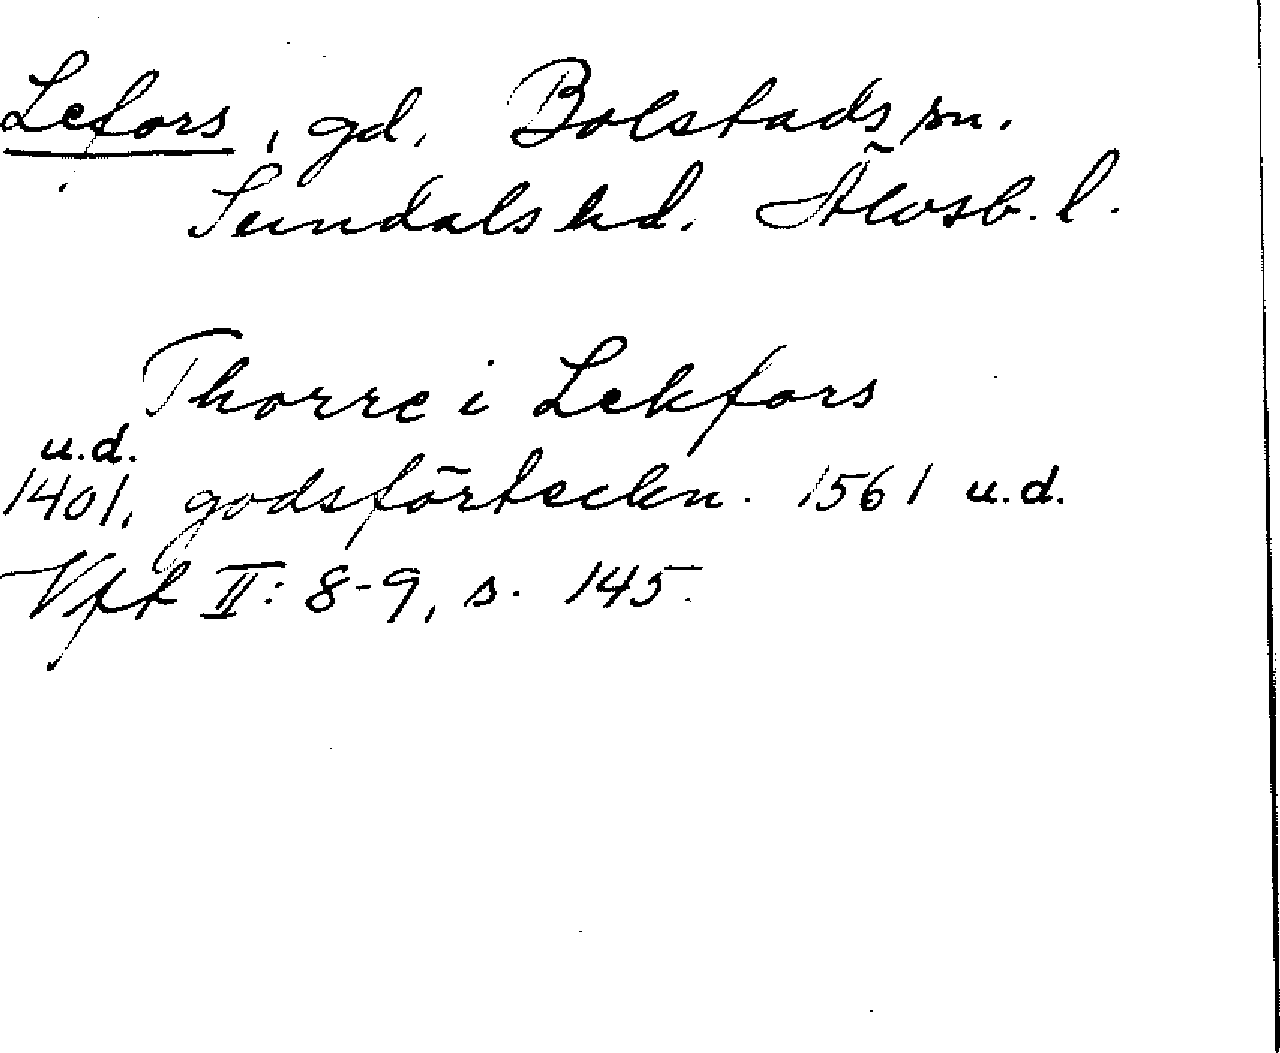 Lefors, gd. Bolstads sn.
Sundals hd. Älvsb. l.
Thorre i Lekfors
u.d.
1401, godsförteckn. 1561 u.d.
Vff II: 8-9, s. 145.